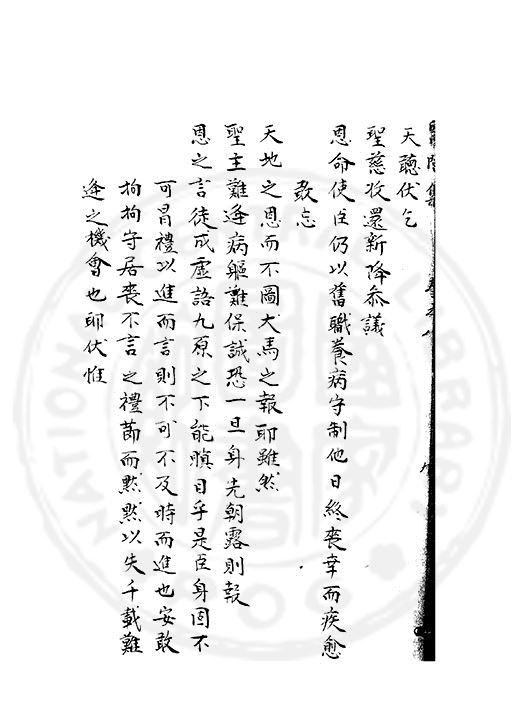 天聽伏乞
聖慈收還新降參議
恩命使臣仍以舊職養病守制他日終喪幸而疾愈
敢忘
天地之恩而不圖犬馬之報耶雖然
聖主難逢病軀難保誠恐一旦身先朝露則報
恩之言徒成虛語九原之下能瞑目乎是臣身固不
可冒禮以進而言則不可不及時而進也安敢
拘拘守居喪不言之禮節而默默以失千載難
逢之機會也耶伏惟
NATIONAL CENTRAL LIBRARY